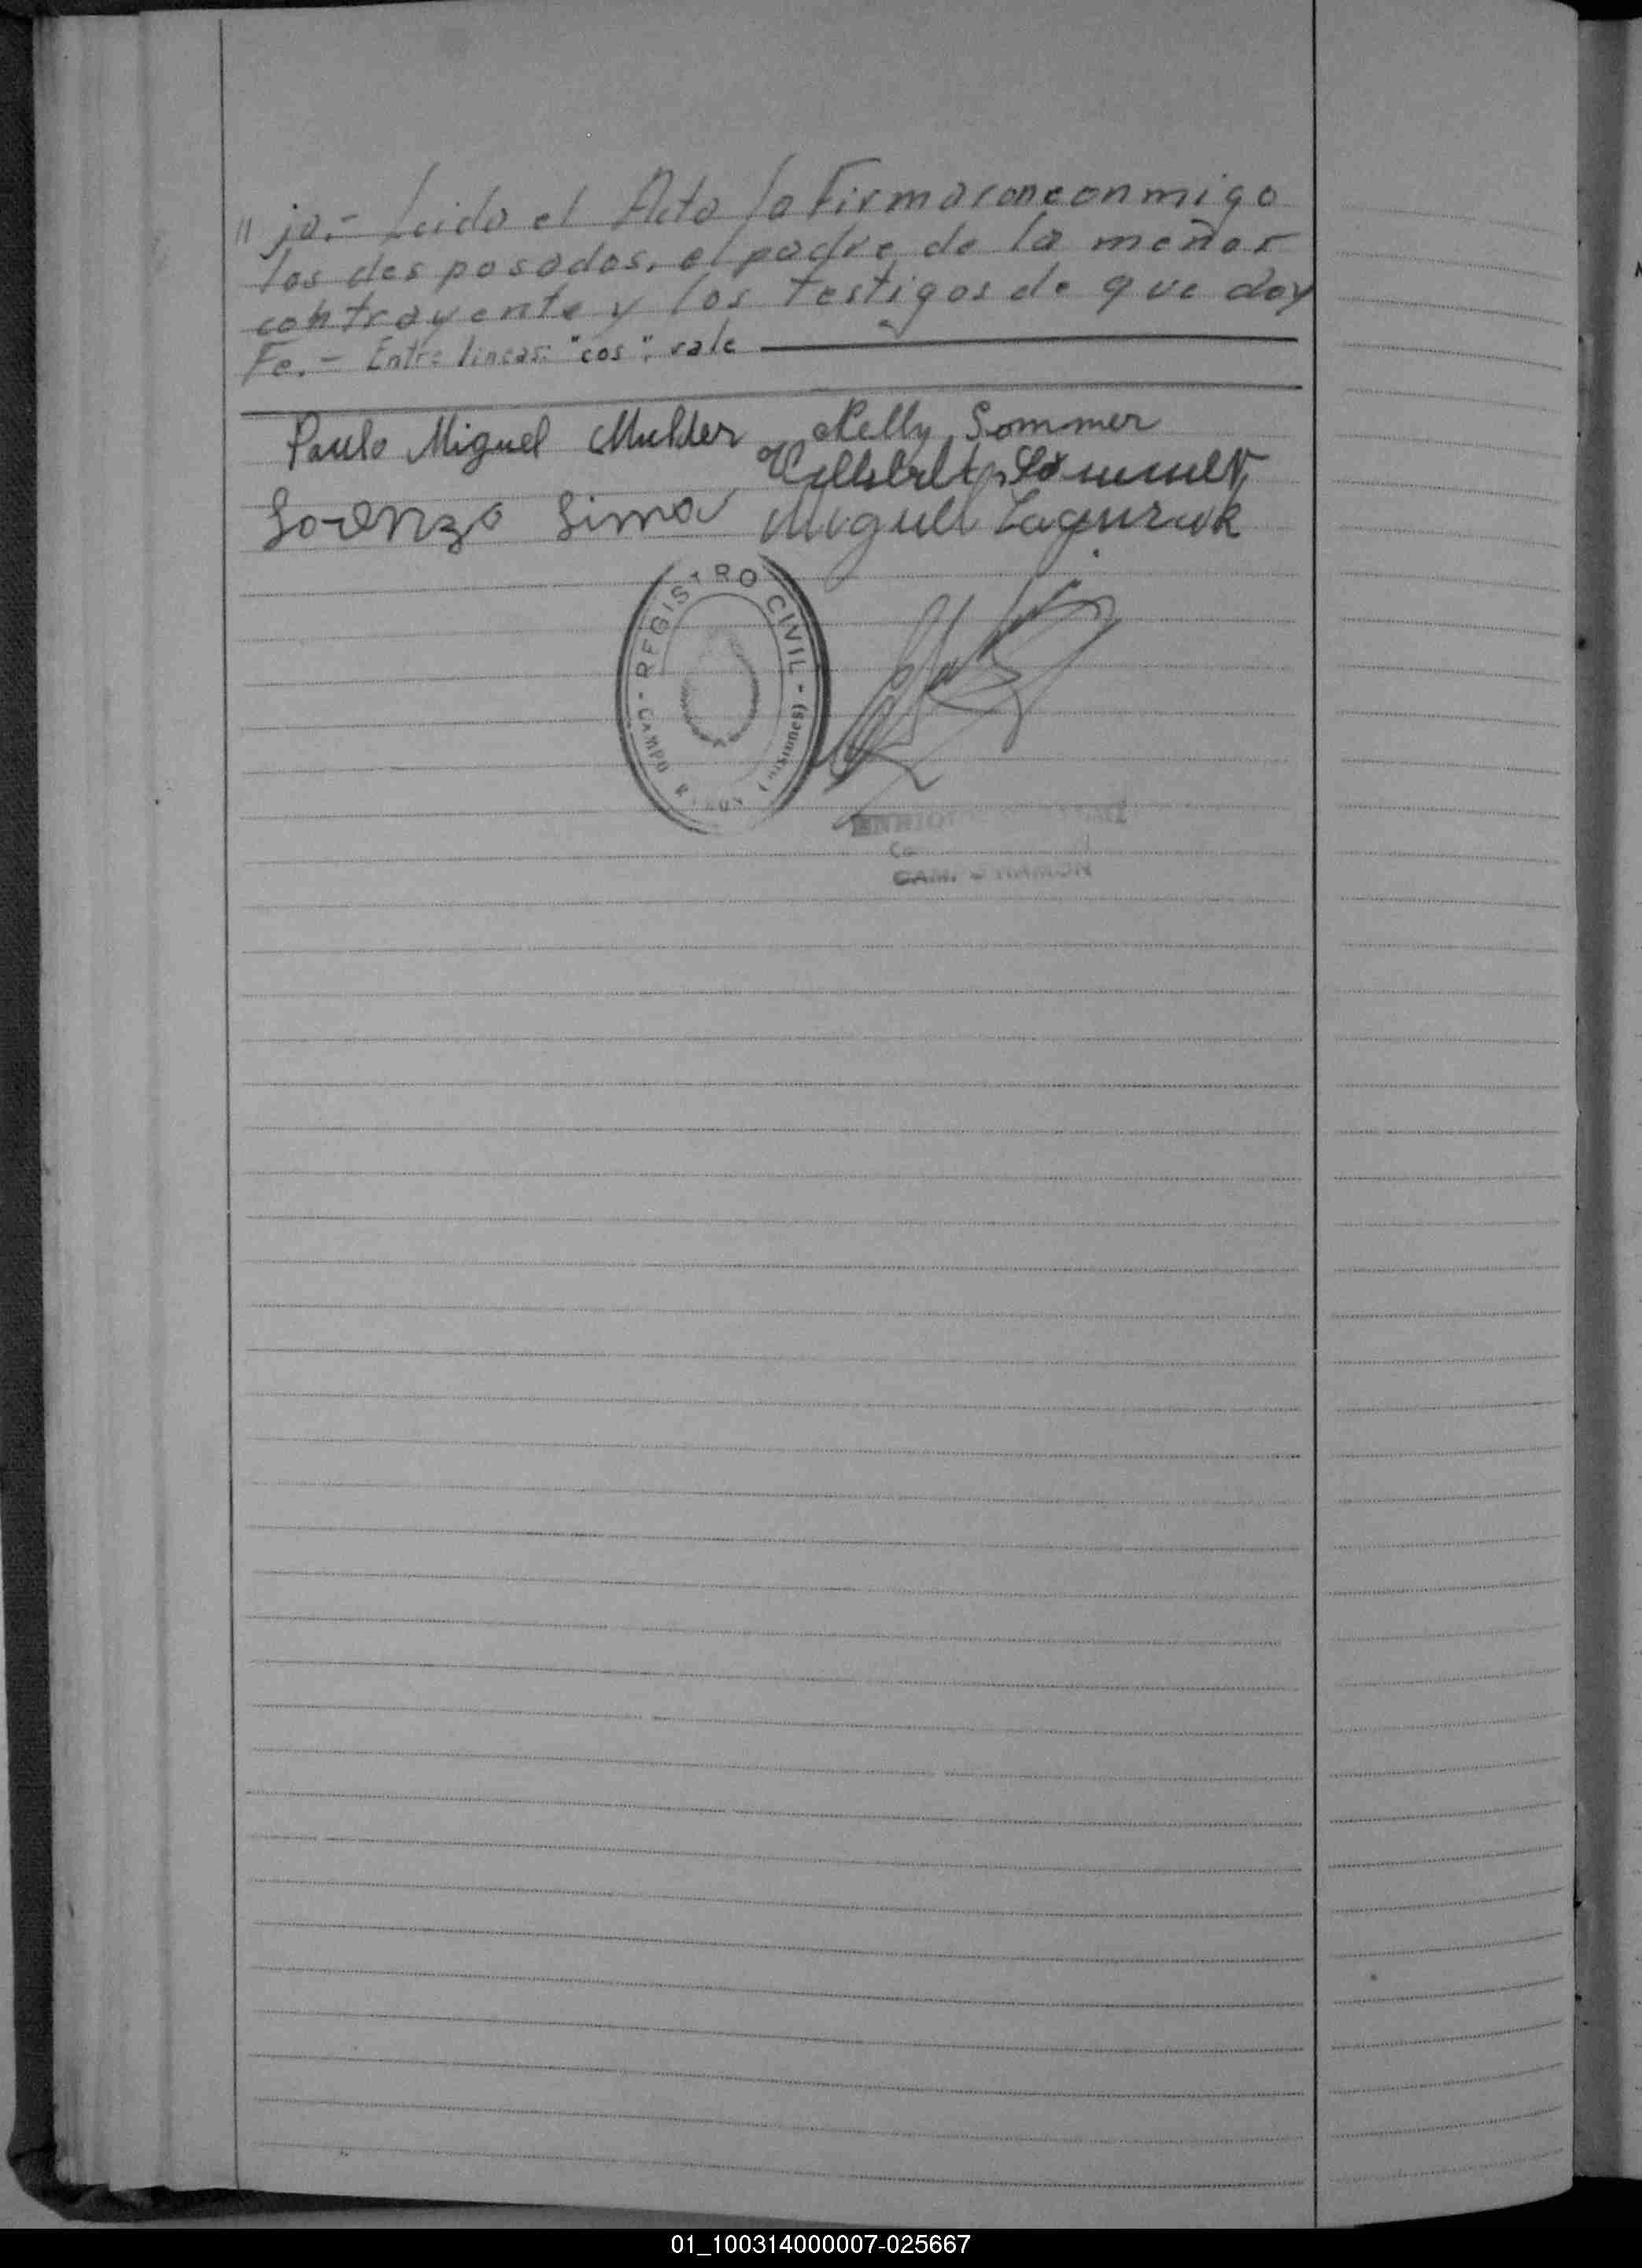 "ja.- Leida el Acta la Firmaron conmigo
los desposados, el padre de la menor
contrayente y los testigos de que doy
Fe.- Entre lineas: "cos": vale
Paulo Miguel Mulder Nelly Sommer
Sommer
Lorenzo Lima Miguel
REGISTRO CIVIL
- CAMPO RAMON (Misiones) -
CAMPO RAMON
01_100314000007-025667